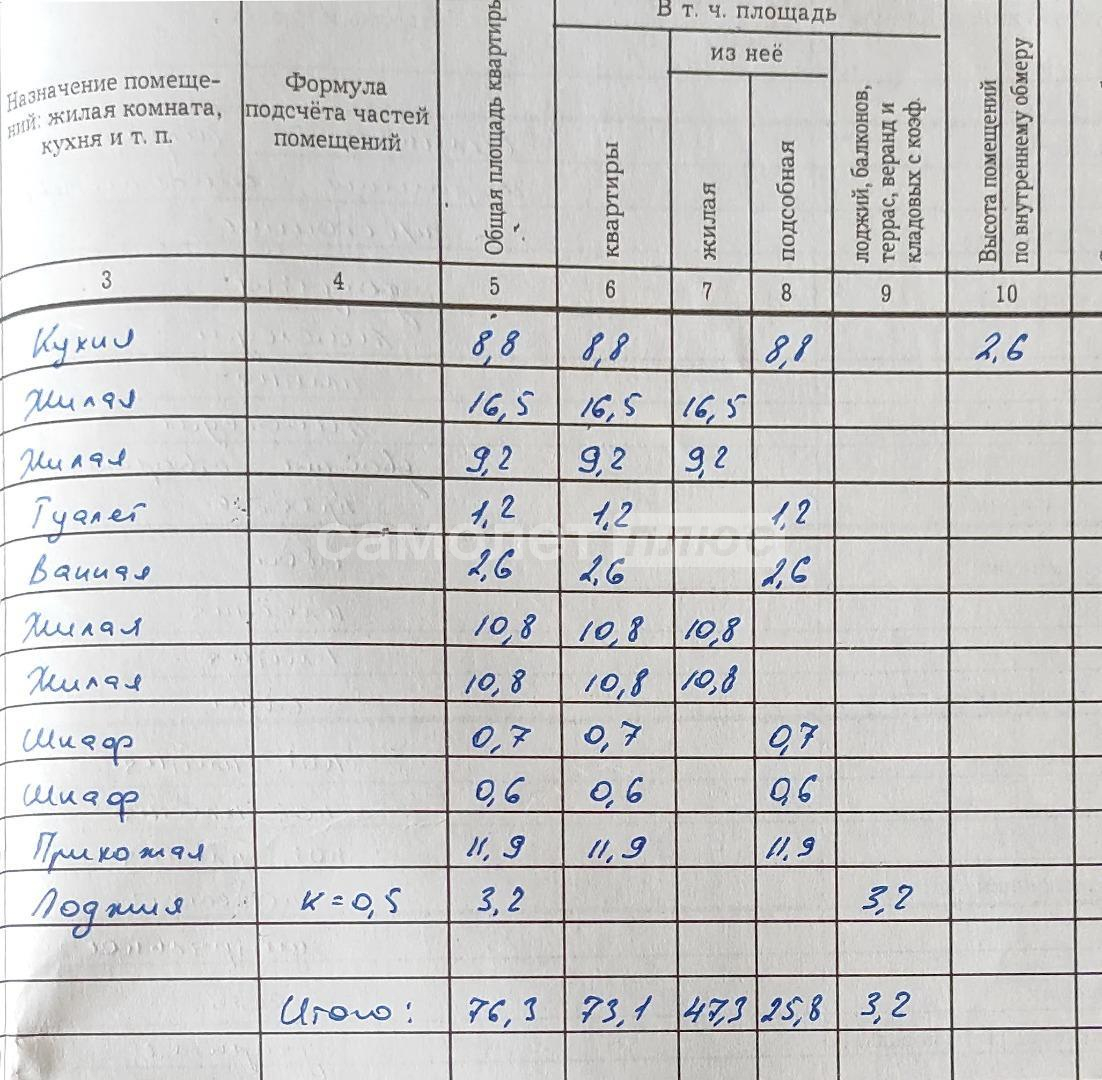 В т. ч. площадь
из неё
Назначение помеще-
ний: жилая комната,
кухня и т. п.
Формула
подсчёта частей
помещений
Общая площадь квартиры
квартиры
жилая
подсобная
лоджий, балконов,
террас, веранд и
кладовых с коэф.
Высота помещений
по внутреннему обмеру
3 4 5 6 7 8 9 10
Кухня 8,8 8,8 8,8 2,6
Жилая 16,5 16,5 16,5
Жилая 9,2 9,2 9,2
Туалет 1,2 1,2 1,2
Ванная 2,6 2,6 2,6
Жилая 10,8 10,8 10,8
Жилая 10,8 10,8 10,8
Шкаф 0,7 0,7 0,7
Шкаф 0,6 0,6 0,6
Прихожая 11,9 11,9 11,9
Лоджия К=0,5 3,2 3,2
Итого: 76,3 73,1 47,3 25,8 3,2
самолет плюс